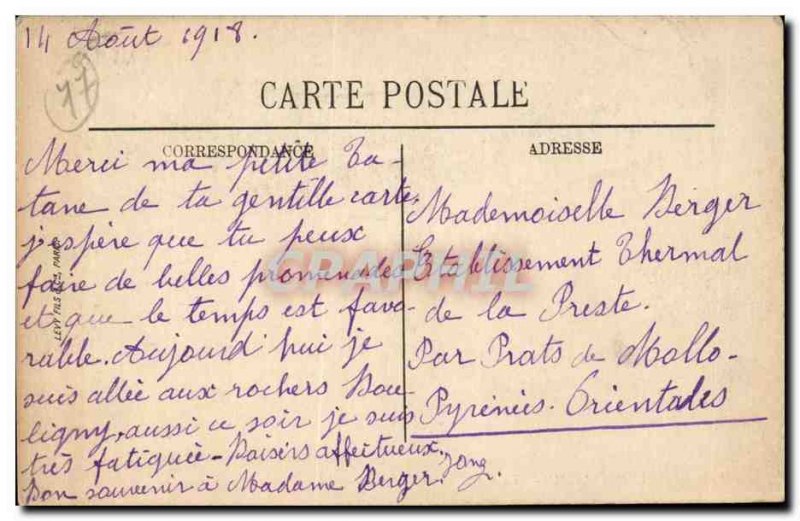 14 Août 1918.
77
CARTE POSTALE
CORRESPONDANCE
ADRESSE
Merci ma petite Ta-
tane de ta gentille carte,
j'espère que tu peux
faire de belles promenades
et que le temps est favo-
rable. Aujourd'hui je
suis allée aux rochers Bou-
ligny, aussi ce soir je suis
très fatiguée - Baisers affectueux.
Bon souvenir à Madame Berger.
Mademoiselle Berger
Etablissement Thermal
de la Preste.
Par Prats de Mollo-
Pyrénées-Orientales
LEVY FILS & Cie, PARIS
GRAPHIL